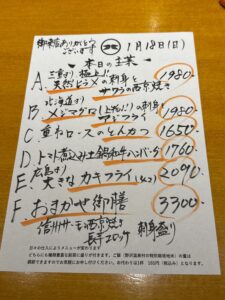 御来店ありがとう
ございます
1月18日(日)
本日の主菜
A. 三重より 極上!!
天然ヒラメの刺身と
サワラの西京焼き 1980-
B. 北海道より
メジマグロ(上物!!)の刺身と
アジフライ 1980-
C. 重ねロースのとんかつ 1650-
D. トマト煮込み土鍋和牛ハンバーグ 1760
E. 広島より
大きなカキフライ 2090
F. おまかせ御膳 3300-
信州サーモン西京焼き
長芋コロッケ 刺身盛り
日々の仕込によりメニューが変わります